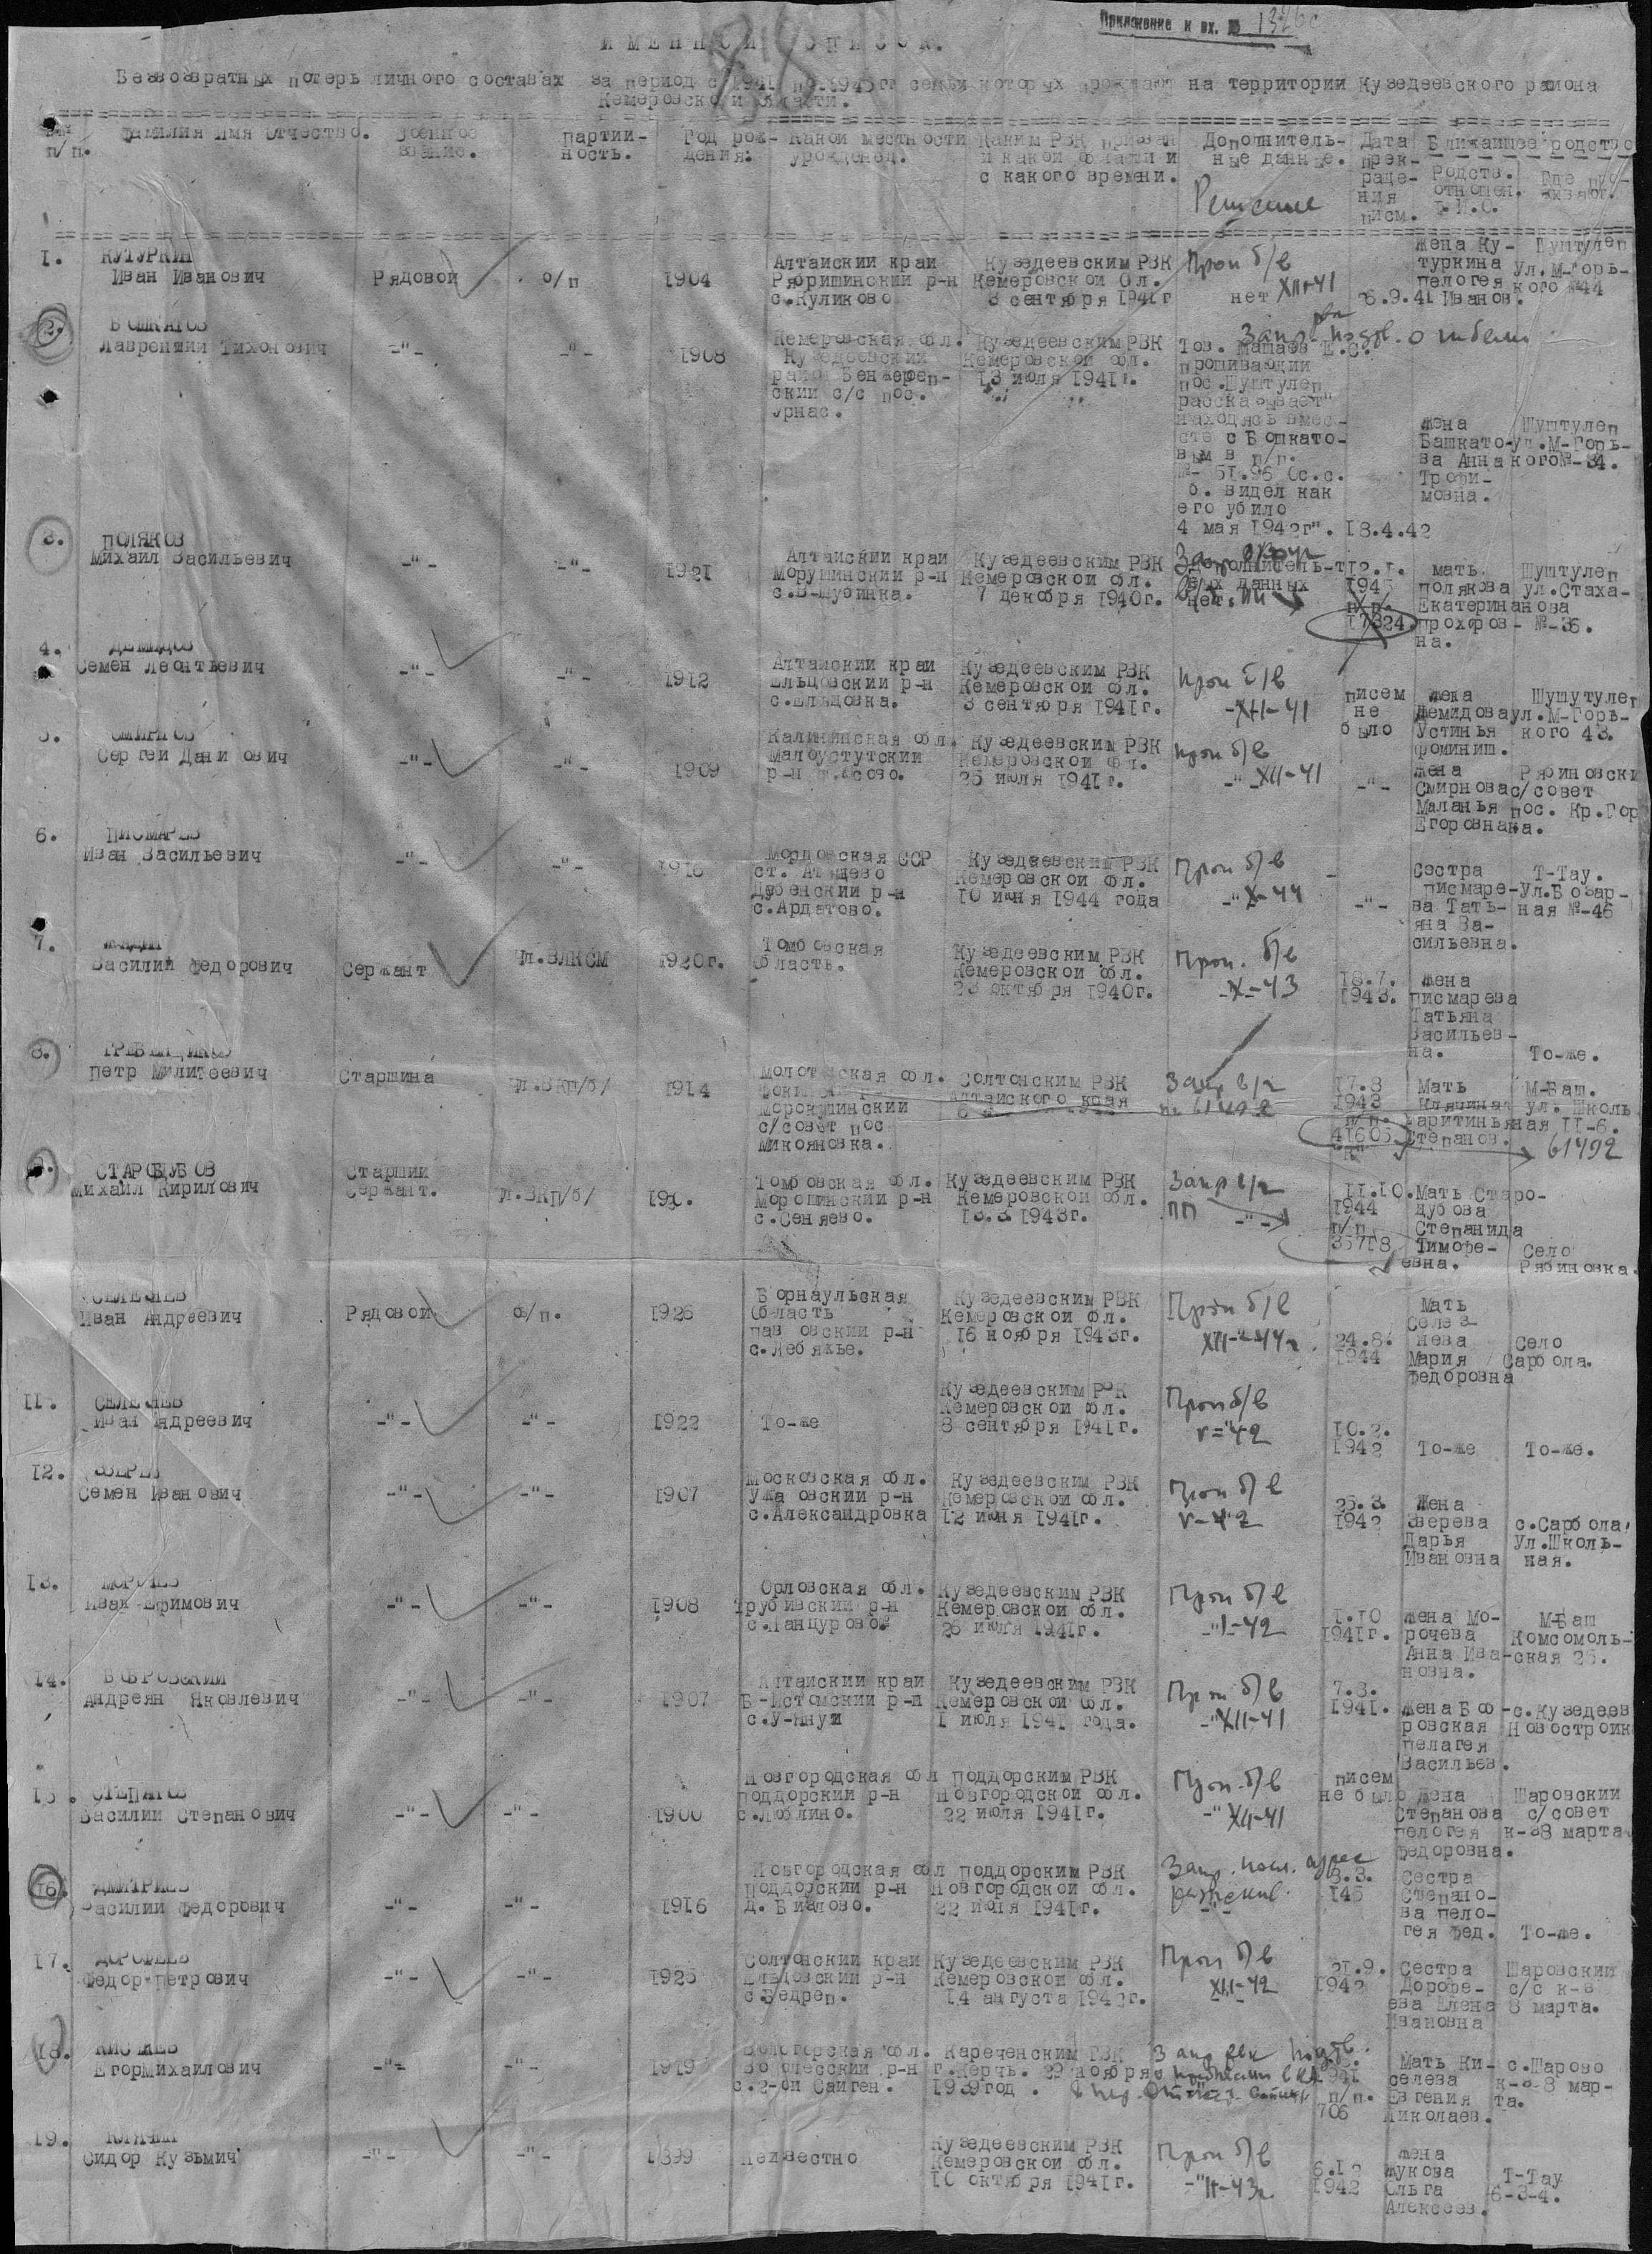 Приложение к вх. № 1326с
ИМЕННОЙ СПИСОК.
Безвозвратных потерь личного составах за период с 1941 по 1945гг семьи которых на территории Кузедеевского района
Кемеровской области.
п/п. Фамилия Имя Отчество. Военное звание. Партий-ность. Год рож-дения. Какой местности урожденец. Каким РВК призван и какой области и с какого времени. Дополнитель-ные данные. Дата прек-раще-ния писм. Ближайшее родство
Родств. отношен. Ф.И.О. Где про-живают.
Решение
1. КУТУРКИН Иван Иванович Рядовой о/п 1904 Алтайский край с.Куликово Кузедеевским РВК Кемеровской Обл. 3 сентября 1941г нет Проп б/в XII-41 6.9.41 Жена Ку-туркина Пелогея Иванов. Шуштулеп ул.М-Горь-кого №44
2. БОШКАТОВ Лаврентий Тихонович -"- -"- 1908 Кемеровская обл. Кузедеевский район Бенжереп-ский с/с пос. Кузедеевским РВК Кемеровской обл. 13 июля 1941г. Запр. рвк подтв. о гибели
Тов. Машаов Е.С. проживающий пос.Шуштулеп рассказывает" находясь вмес-сте с Бошкато-вым в п/п. видел как его убило 4 мая 1942г". 18.4.42 Жена Башкато-ва Анна Трофи-мовна. Шуштулеп ул.М-Горь-кого№-34.
3. ПОЛЯКОВ Михаил Васильевич -"- -"- 1921 Алтайский край Морушинский р-н с.В-Шубинка. Кузедеевским РВК Кемеровской обл. 7 декабря 1940г. Дополнитель-ных данных нет. 12.1. 1945 п/п. 17324. мать. Полякова Екатерина Прохоров-на. Шуштулеп ул.Стаха-нова №-36.
4. ДЕМИДОВ Семен Леонтьевич -"- -"- 1912 Алтайский край Ельцовский р-н с.Ельцовка. Кузедеевским РВК Кемеровской обл. 3 сентября 1941г. Проп б/в -XII-41 писем не было жена Демидова Устинья фоминиш. Шушутулеп ул.М-Горь-кого 43.
5. СМИРНОВ Сергей Дани ович -"- -"- 1909 Калининская обл. Малоустутский р-н Кузедеевским РВК Кемеровской обл. 26 июля 1941г. Проп б/в -"-XII-41 -"- Жена Смирнова Маланья Егоровна. Рябиновски с/совет пос. Кр.Гор
6. ПИСМАРЕВ Иван Васильевич -"- -"- Мордовская ССР ст. Атяшево Дубенский р-н с.Ардатово. Кузедеевским РВК Кемеровской обл. 10 июня 1944 года Проп б/в -"X-44 -"- Сестра Писмаре-ва Тать-яна Ва-сильевна. Т-Тау. ул.Базар-ная №-46
7. Василий Федорович Сержант чл.ВЛКСМ 1920г. Томбовская область. Кузедеевским РВК Кемеровской обл. 23 октября 1940г. Проп. б/в -X-43 18.7. 1943. Жена Писмарева Татьяна Васильев-на. То-же.
8. ГРЕБЕНЩИКОВ Петр Милитеевич Старшина чл.ВКП/б/ 1914 Молотовская обл. Морокушинский с/совет пос Микояновка. Солтонским РВК Алтайского края Запр в/ч пп 61492 17.8 1943 п/п. 41605 Мать Клячина Харитинья Степанов. М-Баш. ул. Школь ная 11-6. 61492
9. СТАРОДУБОВ Михаил Кирилович Старший Сержант. чл.ВКП/б/ Томбовская обл. Морошинский р-н с.Сеняево. Кузедеевским РВК Кемеровской обл. 13.3.1943г. Запр в/ч ПП -"- 11.10. 1944 п/п 35718 Мать Старо-дубова Степанида Тимофе-евна. Село Рябиновка.
СЕЛЕЗНЕВ Иван Андреевич Рядовой б/п. 1926 Борнаульская область Пав овский р-н с.Лебяжье. Кузедеевским РВК Кемеровской обл. 16 ноября 1943г. Проп б/в XII-44г. 24.8. 1944 Мать Селез-нева Мария Федоровна Село Сарбола.
11. СЕЛЕЗНЕВ Иван Андреевич -"- -"- 1922 То-же Кузедеевским РВК Кемеровской обл. 8 сентября 1941г. Проп б/в V-42 10.2. 1942 То-же То-же.
12. ЗВЕРЕВ Семен Иванович -"- -"- 1907 Московская обл. Ужа овский р-н с.Александровка Кузедеевским РВК Кемеровской обл. 12 июня 1941г. Проп б/в V-42 25.3. 1942 Жена Зверева Дарья Ивановна с.Сарбола. Ул.Школь-ная.
13. Иван Ефимович -"- -"- 1908 Орловская обл. Трубивский р-н с.Панцурово. Кузедеевским РВК Кемеровской обл. 26 июля 1941г. Проп б/в -"I-42 1.10 1941г. Жена Мо-рочева Анна Ива-новна. М-Баш Комсомоль-ская 25.
14. БОБРОВСКИЙ Андреян Яковлевич -"- -"- 1907 Алтайский край Б-Истокский р-н с.У-Ануй Кузедеевским РВК Кемеровской обл. 1 июля 1941 года. Проп б/в -"XII-41 7.8. 1941. Жена Боб-ровская Пелагея Васильев. с.Кузедеев Новостройк
15. СТЕПАНОВ Василий Степанович -"- -"- 1900 Новгородская обл Поддорский р-н с.Люблино. Поддорским РВК Новгородской обл. 22 июля 1941г. Проп. б/в -"XII-41 писем не было Жена Степанова Пелогея Федоровна. Шаровский с/совет к-з8 марта
16. ДМИТРИЕВ Василий Федорович -"- -"- 1916 Новгородская обл Поддорский р-н д. Бивлово. Поддорским РВК Новгородской обл. 22 июня 1941г. Запр. посл. адрес -"- 3.3. 145 Сестра Степано-ва Пело-гея Фед. То-же.
17. ДОРОФЕЕВ Федор Петрович -"- -"- 1925 Солтонский край Ельцовский р-н с.Бедреп. Кузедеевским РВК Кемеровской обл. 14 августа 194 г. Проп б/в XII-42 21.9. 1942 Сестра Дорофе-ева Елена Ивановна Шаровский с/с к-з 8 марта.
18. КИСЕЛЕВ ЕгорМихайлович -"- -"- 1919 Вологорская обл. с.2-ой Сайген. Кареченским РВК г.Керчь. 29 ноября 1939год. Запр рвк подтв. п/п. 706 Мать Ки-селева Евгения Николаев. с.Шарово к-з-8 мар-та.
19. КЛЯЧИН Сидор Кузьмич -"- -"- 1899 Неизвестно Кузедеевским РВК Кемеровской обл. 10 октября 1941г. Проп б/в -"II-43г. 1942 Жена Жукова Ольга Алексеев. Т-Тау 6-3-4.